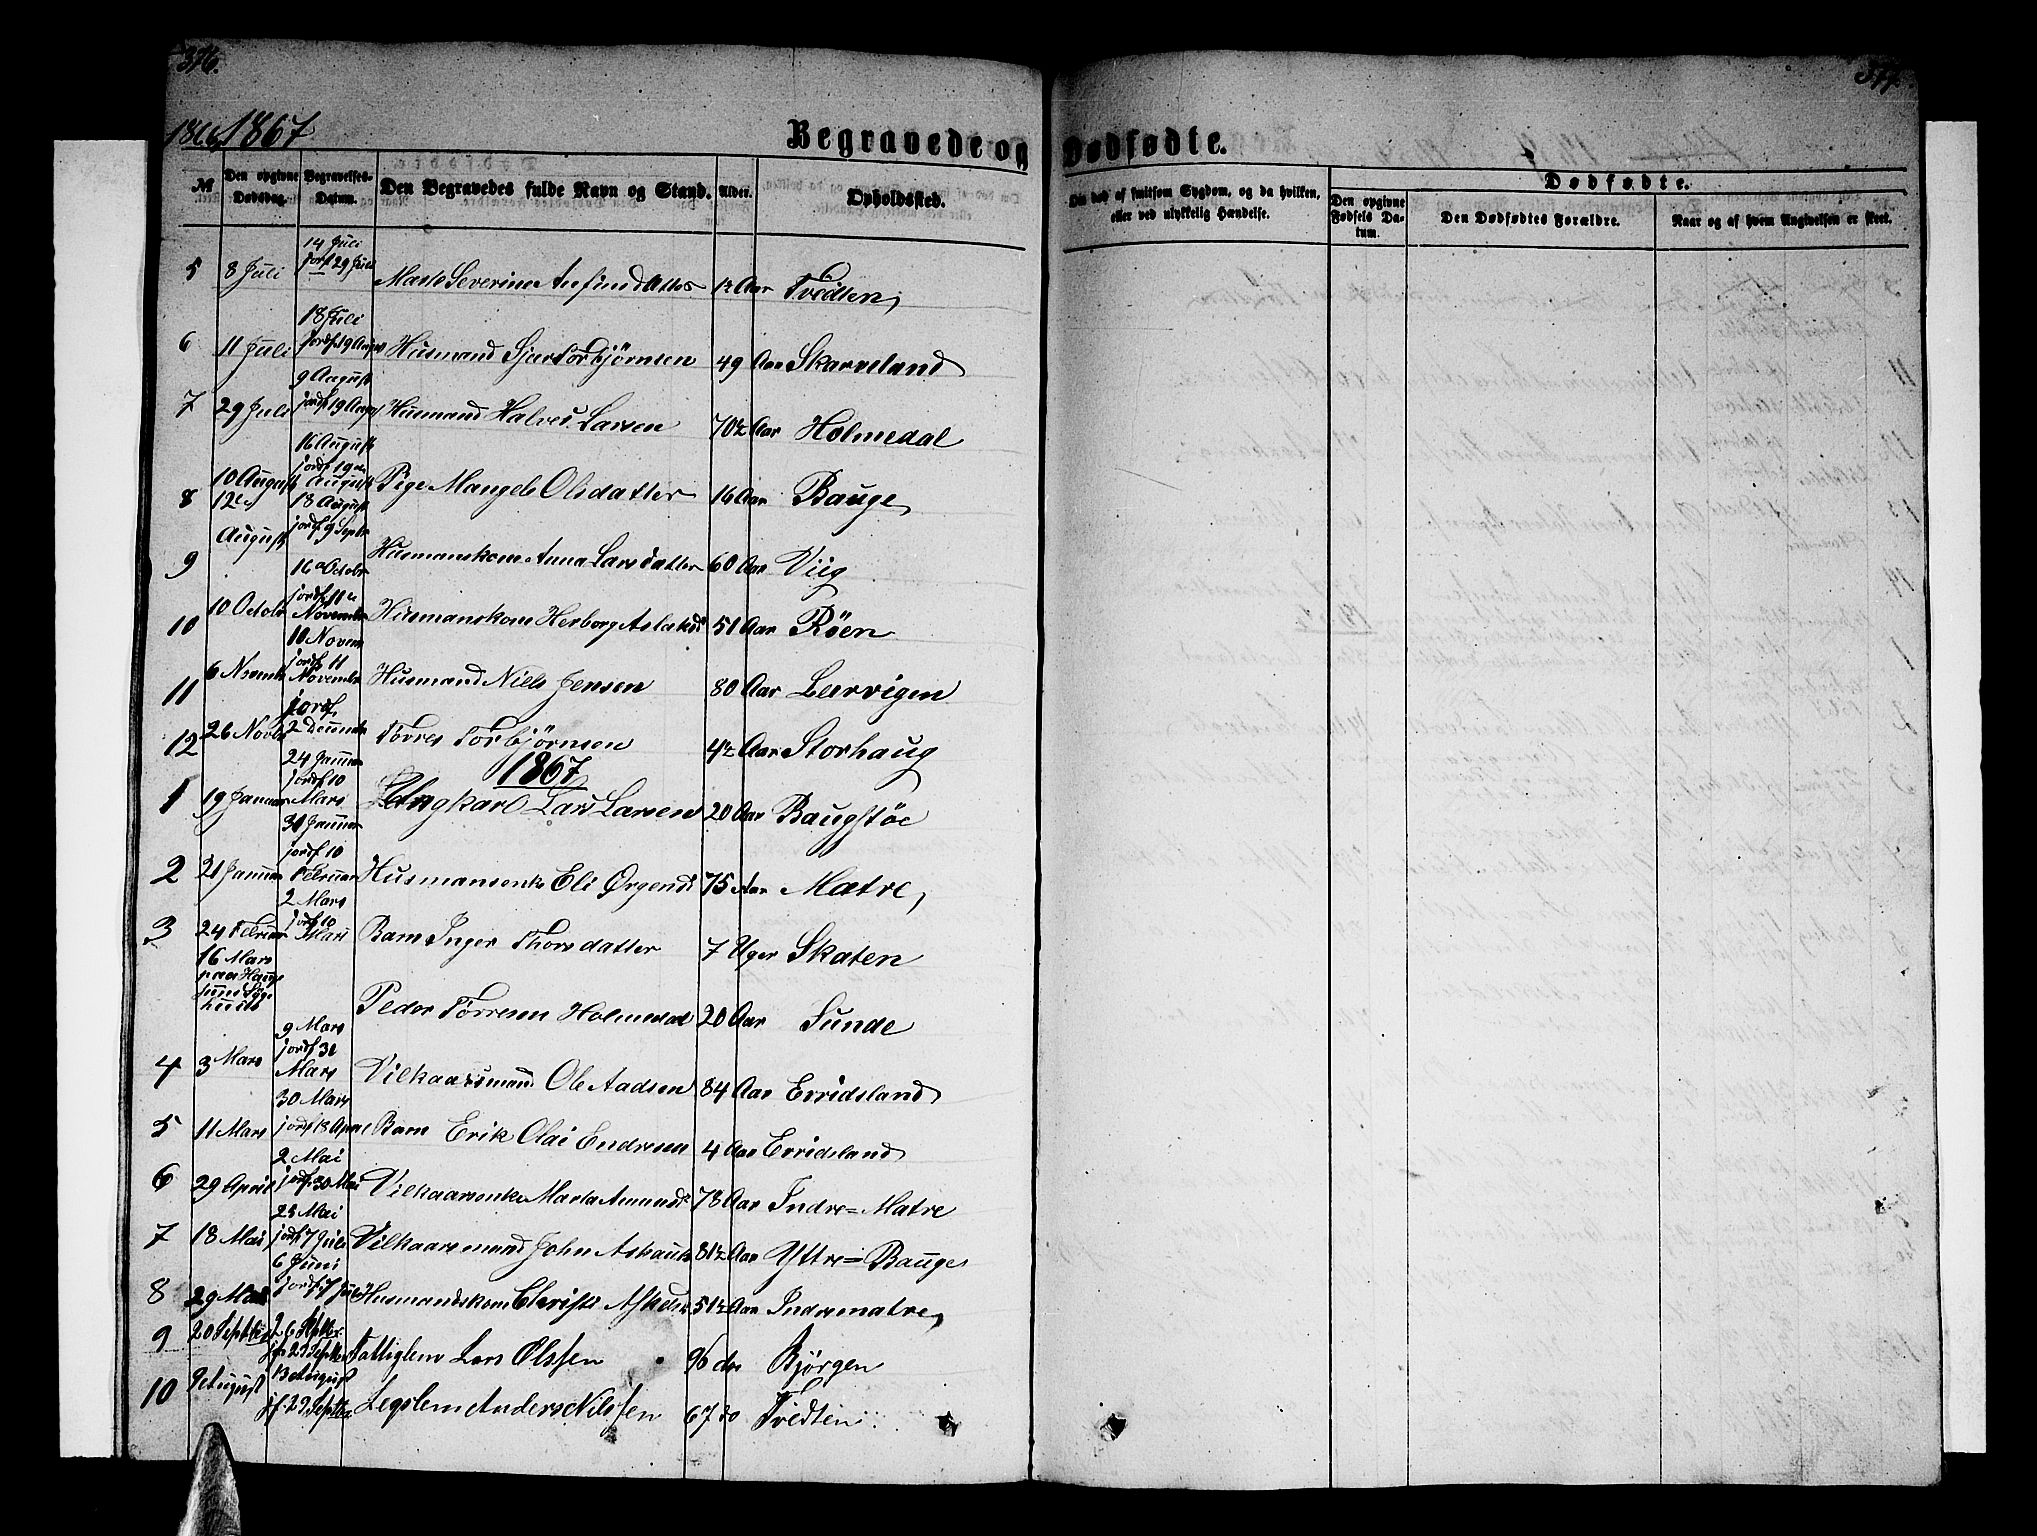 376.
377.
1866, 1867
Begravede og Dødfødte.
№
Den opgivne Dødsdag.
Begravelses-Datum.
Den Begravedes fulde Navn og Stand.
Alder.
Opholdssted.
Om død af smitsom Sygdom, og da hvilken, eller ved ulykkelig Hændelse.
Dødfødte.
Den opgivne Fødsels Datum.
Den Dødfødtes Forældre.
Naar og af hvem Angivelsen er skeet.
14 Juli
5 8 Juli jordf 29 Juli Severine Anfindatter Aar Tvedten
18 Juli
6 11 Juli jordf 19 August Husmand Torbjørnsen 49 Aar Skarveland
9 August
7 29 Juli jordf 19 Aug Husmand Larsen 70½ Aar Holmedal
16 August
jordf 19de
8 10 August August Pige Mangele Olsdatter 16 Aar Bauge
12te 18 August
August jordf 9 Septbr
9 Husmanskone Anna Larsdatter 60 Aar Viig
16 Octobr
jordf 11te
10 10 Octobr November Husmanskone Herborg Aslaksd 51 Aar Røen
10 Novem
jordf 11
11 6 Novemb November Husmand Niels Jensen 80 Aar Leervigen
jordf
12 26 Novbr 2 Decemb Torres Torbjørnsen 4½ Aar Storhaug
24 Januar
jordf 10 1867
1 19 Januar Mars Ungkarl Lars Larsen 20 Aar Baugstøe
31 Januar
jordf 10
2 21 Januar Februar Husmansenke Eli Ørgensd 75 Aar Matre
2 Mars
jordf 10
3 24 Februar Mars Barn Inger Thorsdatter 7 Uger Skaten
16 Mars
paa
Peder Torresen Holmedal 20 Aar Sunde
9 Mars
jordf 31
4 3 Mars Mars Vilkaarsmand Ole Aadsen 84 Aar Erridsland
30 Mars
5 11 Mars jordf 13 April Barn Erik Olai Endresen 4 Aar Erridsland
2 Mai
6 29 April jordf 30 Mai Vilkaarsenke Marta Amunds 78 Aar Indre=Matre
23 Mai
7 18 Mai jordf 7 Juli Vilkaarsmand John 81½ Aar Yttre=Bauge
6 Juni
8 29 Mai jordf 7 Juli Husmandskone Christi 51½ Aar Indrematre
26 Septbr.
9 20 Septbr jf 29 Septbr Fattiglem Lars Olssen 96 do Bjørgen
13 August
10 9 August jf. 29 Septbr Legslem Anders Nilssen 67 do Tvedten